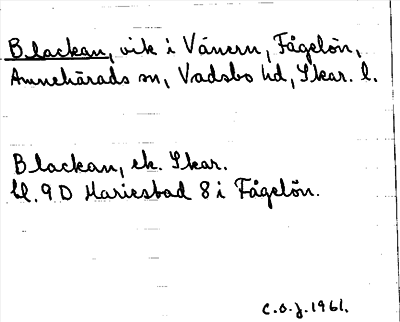 Blackan, vik i Vänern, Fågelön,
Amnehärads sn, Vadsbo hd, Skar. l.
Blackan, ek. Skar.
bl. 9 D Mariestad 8 i Fågelön.
C.O.J. 1961.